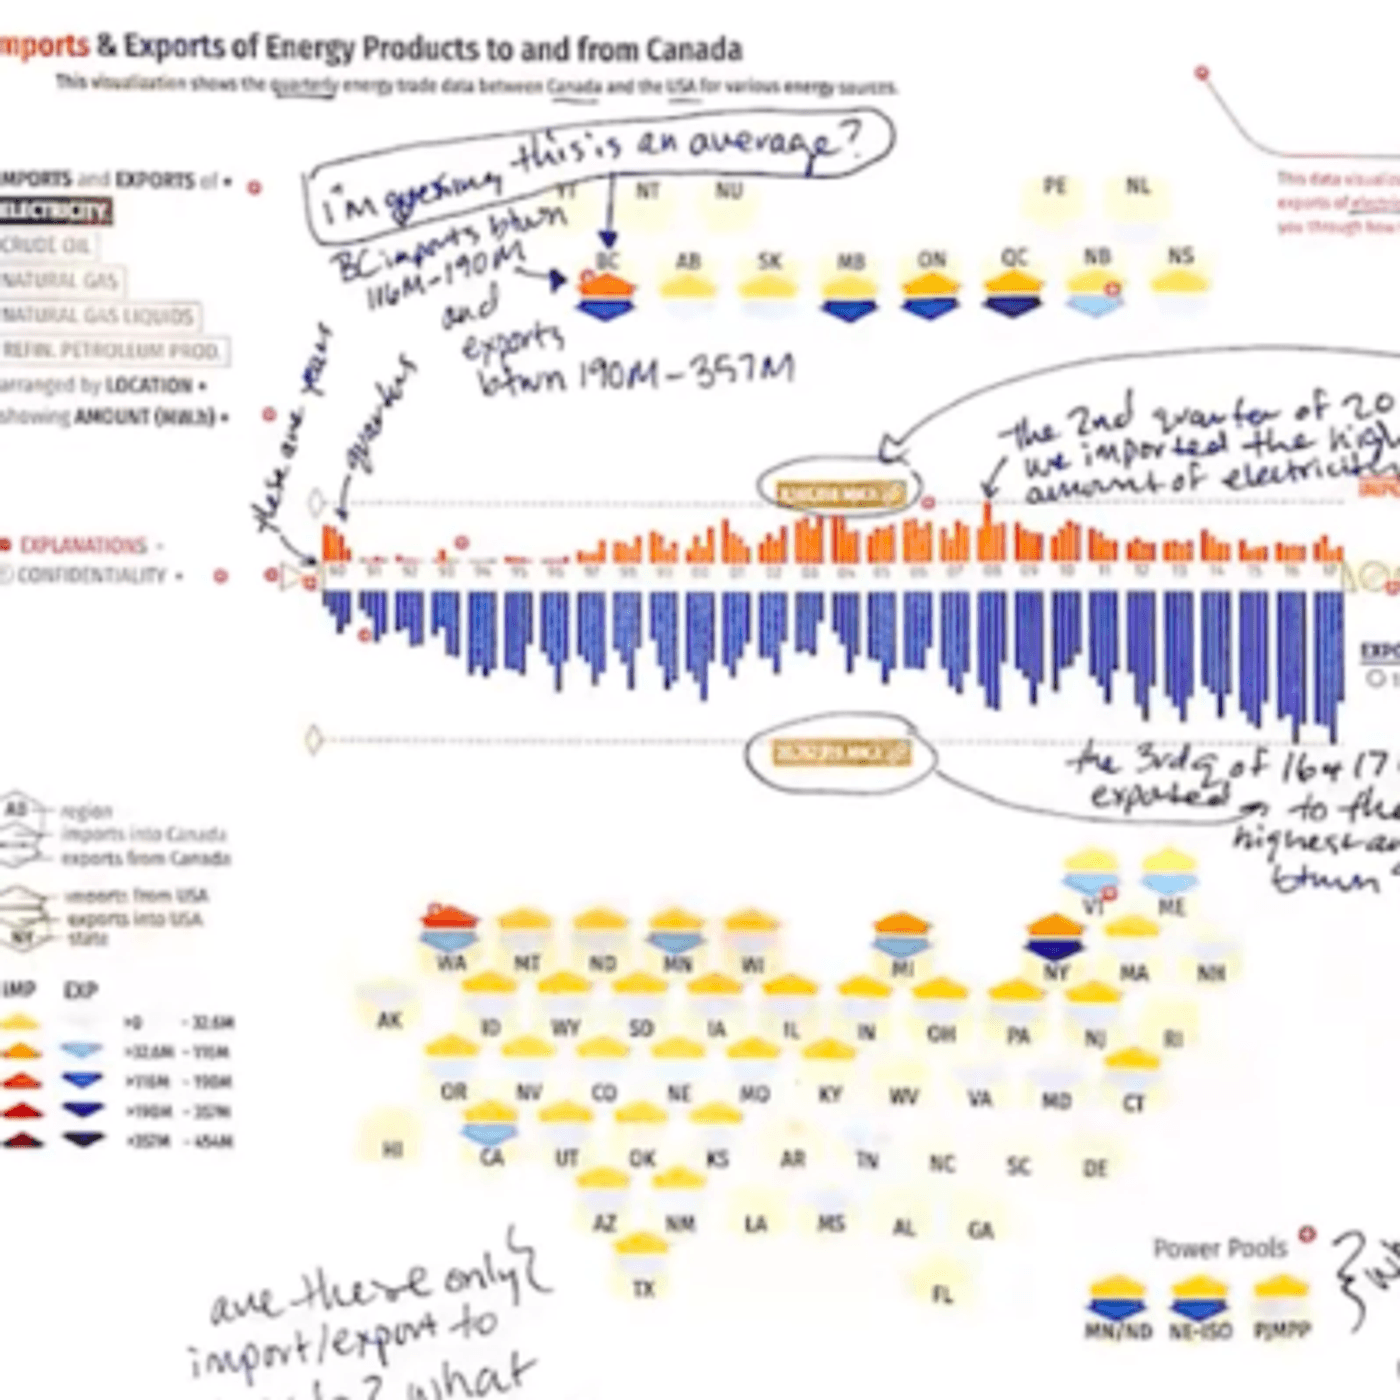 mports & Exports of Energy Products to and from Canada
This visualization shows the quarterly energy trade data between Canada and the USA for various energy sources.
i'm guessing this is an average?
IMPORTS and EXPORTS of
ELECTRICITY
CRUDE OIL
NATURAL GAS
NATURAL GAS LIQUIDS
REFIN. PETROLEUM PROD.
arranged by LOCATION
showing AMOUNT (MW.h)
YT NT NU PE NL
BC AB SK MB ON QC NB NS
This data visualiz
exports of electri
you through how
BC imports btwn
116M-190M
and
exports
btwn 190M-357M
these are years
quarters
the 2nd quarter of 20
we imported the high
amount of electricity
IMPO
EXPLANATIONS -
CONFIDENTIALITY
90 91 92 93 94 95 96 97 98 99 00 01 02 03 04 05 06 07 08 09 10 11 12 13 14 15 16 17
EXPO
the 3rd q of 16 & 17
exported to the
highest a
btwn
AB region
imports into Canada
exports from Canada
imports from USA
exports into USA
NY state
VT ME
WA MT ND MN WI MI NY MA NH
AK ID WY SD IA IL IN OH PA NJ RI
OR NV CO NE MO KY WV VA MD CT
HI CA UT OK KS AR TN NC SC DE
AZ NM LA MS AL GA
TX FL
IMP EXP
>0 - 32.6M
>32.6M - 116M
>116M - 190M
>190M - 357M
>357M - 454M
Power Pools
MN/ND NE-ISO PJMPP
are there only
import/export to
? what